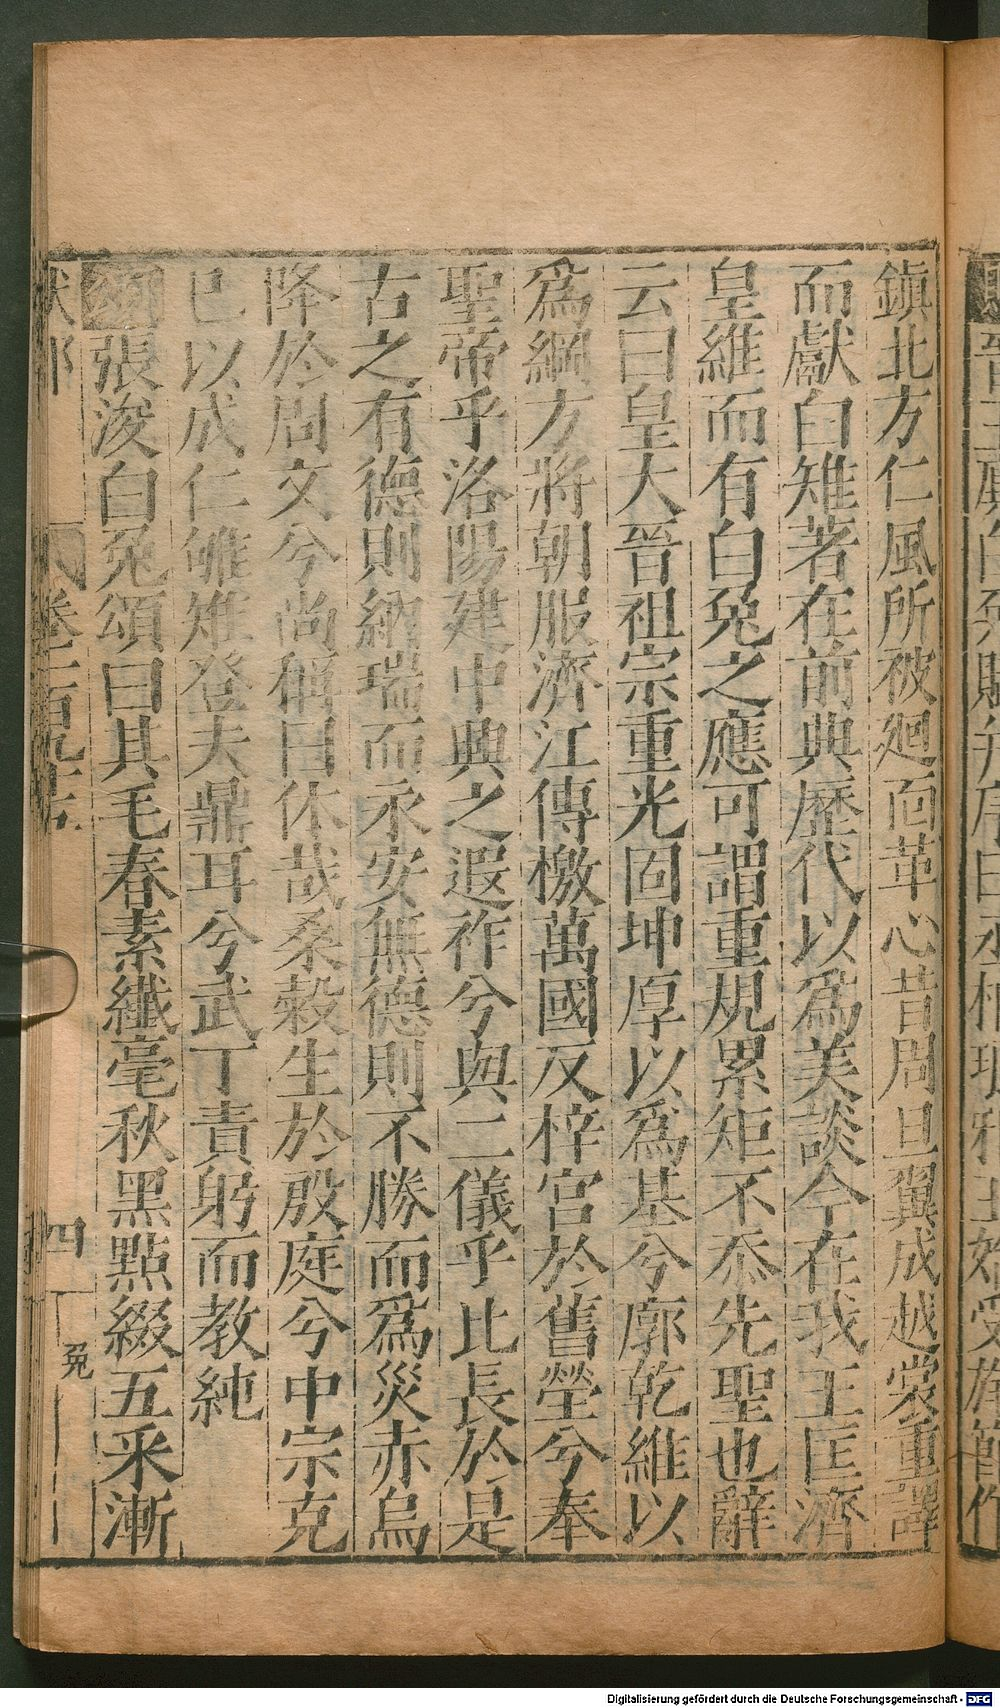 鎮北方仁風所被廻面革心昔周旦翼成越裳重譯
而獻白雉著在前典歷代以爲美談今在我王匡濟
皇維而有白兔之應可謂重規累矩不忝先聖也辭
云曰皇大晉祖宗重光固坤厚以爲基兮廓乾維以
爲綱方將朝服濟江傳檄萬國反梓宮於舊塋兮奉
聖帝乎洛陽建中興之遐祚兮與二儀乎比長於是
古之有德則納瑞而永安無德則不勝而爲災赤烏
降於周文兮尚稱曰休哉桑榖生於殷庭兮中宗克
已以成仁雊雉登夫鼎耳兮武丁責躬而教純
張浚白兔頌曰其毛春素纖毫秋黑點綴五采漸
獸部
四
兔
Digitalisierung gefördert durch die Deutsche Forschungsgemeinschaft - DFG